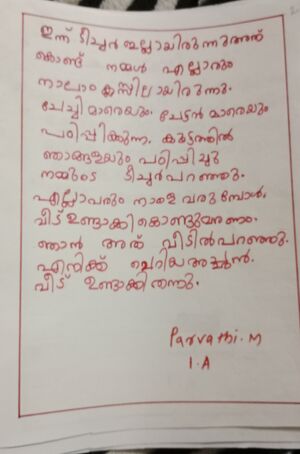 ഇന്ന് ടീച്ചർ ഇല്ലായിരുന്നു അത്
കൊണ്ട് നമ്മൾ എല്ലാരും
നാലാം ക്ലസ്സിലായിരുന്നു.
ചേച്ചിമാരെയും. ചേട്ടൻ മാരെയും
പഠിപ്പിക്കുന്ന. കൂട്ടത്തിൽ
ഞാങ്ങളെയും പഠിപ്പിച്ചു
നമ്മുടെ ടീച്ചർപറഞ്ഞു.
എല്ലാവരും നാളെ വരുമ്പോൾ.
വീട് ഉണ്ടാക്കികൊണ്ടുവരണം.
ഞാൻ അത് വീട്ടിൽപറഞ്ഞു.
എനിക്ക് ചെറിയഅച്ഛൻ.
വീട് ഉണ്ടാക്കിതന്നു.
Parvathi. M
1. A